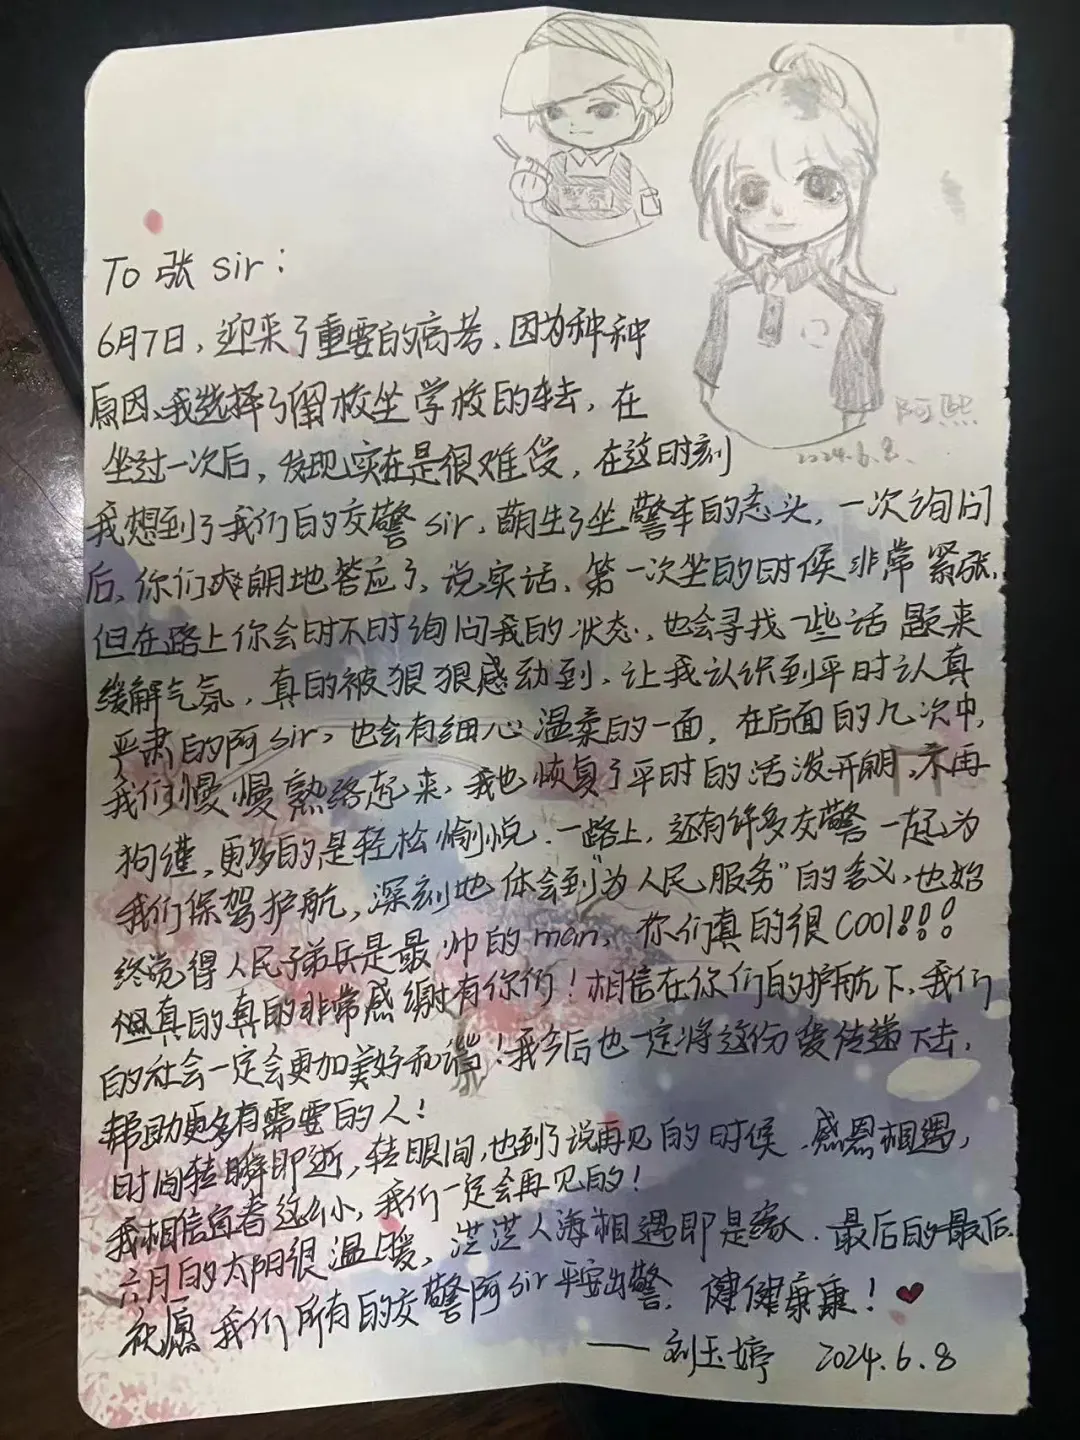 To 张 sir：
6月7日，迎来了重要的高考，因为种种
原因，我选择了留校坐学校的车去，在
坐过一次后，发现实在是很难受，在这时刻
我想到了我们的交警 sir，萌生了坐警车的念头，一次询问
后，你们爽朗地答应了，说实话，第一次坐的时候非常紧张，
但在路上你会时不时询问我的状态，也会寻找一些话题来
缓解气氛，真的被狠狠感动到，让我认识到平时认真
严肃的阿 sir，也会有细心温柔的一面，在后面的几次中，
我们慢慢熟络起来，我也恢复了平时的活泼开朗，不再
拘谨，更多的是轻松愉悦．一路上，还有许多交警一起为
我们保驾护航，深刻地体会到“为人民服务”的含义，也始
终觉得人民子弟兵是最帅的 man，你们真的很 COOl！！！
但真的真的非常感谢有你们！相信在你们的护航下，我们
的社会一定会更加美好和谐！我今后也一定将这份爱传递下去，
帮助更多有需要的人！
时间转瞬即逝，转眼间，也到了说再见的时候．感恩相遇，
我相信宜春这么小，我们一定会再见的！
六月的太阳很温暖，茫茫人海相遇即是缘．最后的最后，
祝愿我们所有的交警阿 sir 平安出警．健健康康！
——刘玉婷 2024.6.8
阿熙
2024.6.8.